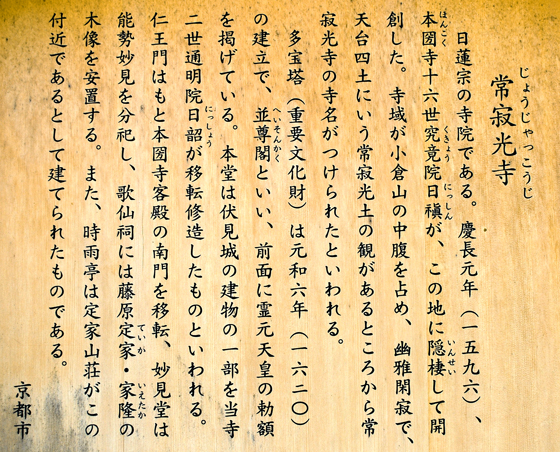 じょうじゃっこうじ
常寂光寺
日蓮宗の寺院である。慶長元年（一五九六）、
ほんこく くきょう にっしん いんせい
本圀寺十六世究竟院日禛が、この地に隠棲して開
創した。寺域が小倉山の中腹を占め、幽雅閑寂で、
天台四土にいう常寂光土の観があるところから常
寂光寺の寺名がつけられたといわれる。
多宝塔（重要文化財）は元和六年（一六二〇）
へいそんかく
の建立で、並尊閣といい、前面に霊元天皇の勅額
を掲げている。本堂は伏見城の建物の一部を当寺
にっしょう
二世通明院日韶が移転修造したものといわれる。
仁王門はもと本圀寺客殿の南門を移転、妙見堂は
ていが いえたか
能勢妙見を分祀し、歌仙祠には藤原定家・家隆の
木像を安置する。また、時雨亭は定家山荘がこの
付近であるとして建てられたものである。
京都市